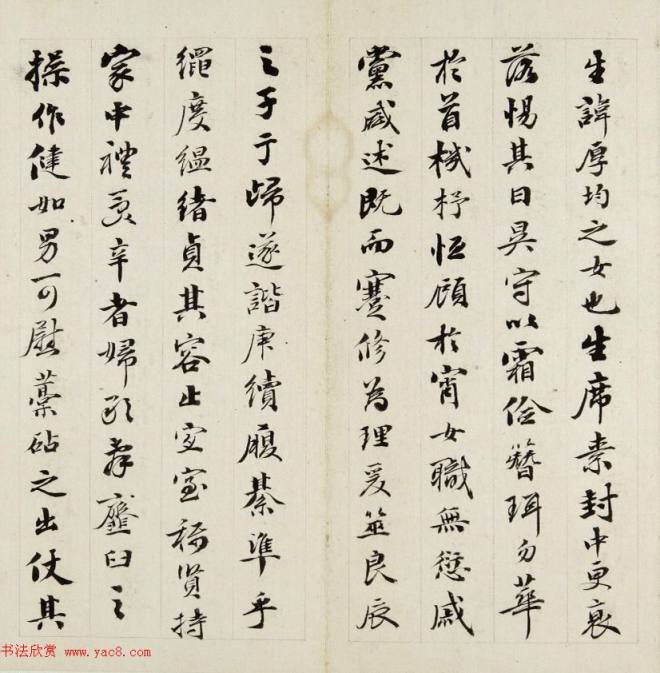 生諱厚均之女也生席素封中更衰
落惕其日昃守以霜儉簪珥勿華
於首械杼恒顧於宵女職無愆戚
黨咸述既而蹇修為理爰筮良辰
之子于歸遂諧康續履綦準乎
繩度縕緒貞其容止室稱賢持
家中禮受辛者婦臼之
操作健如男可慰藁砧之出仗其
书法欣赏 www.yac8.com